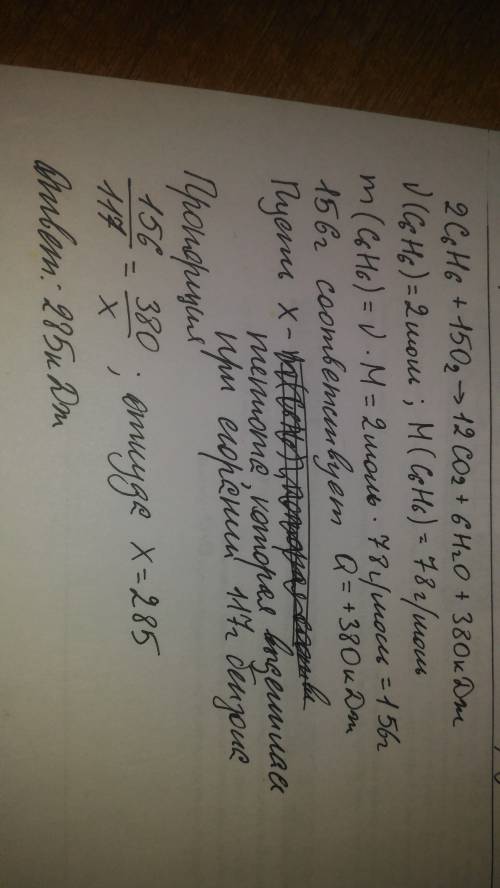 2C6H6 + 15O2 → 12CO2 + 6H2O + 380кДж
ν(C6H6) = 2моль ; M(C6H6) = 78г/моль
m(C6H6) = ν · M = 2моль · 78г/моль = 156г
156г соответствует Q = +380кДж
Пусть x -
теплота, которая выделилась
при сгорании 117г бензола
Пропорция
156/117 = 380/x ; откуда x = 285
Ответ: 285кДж